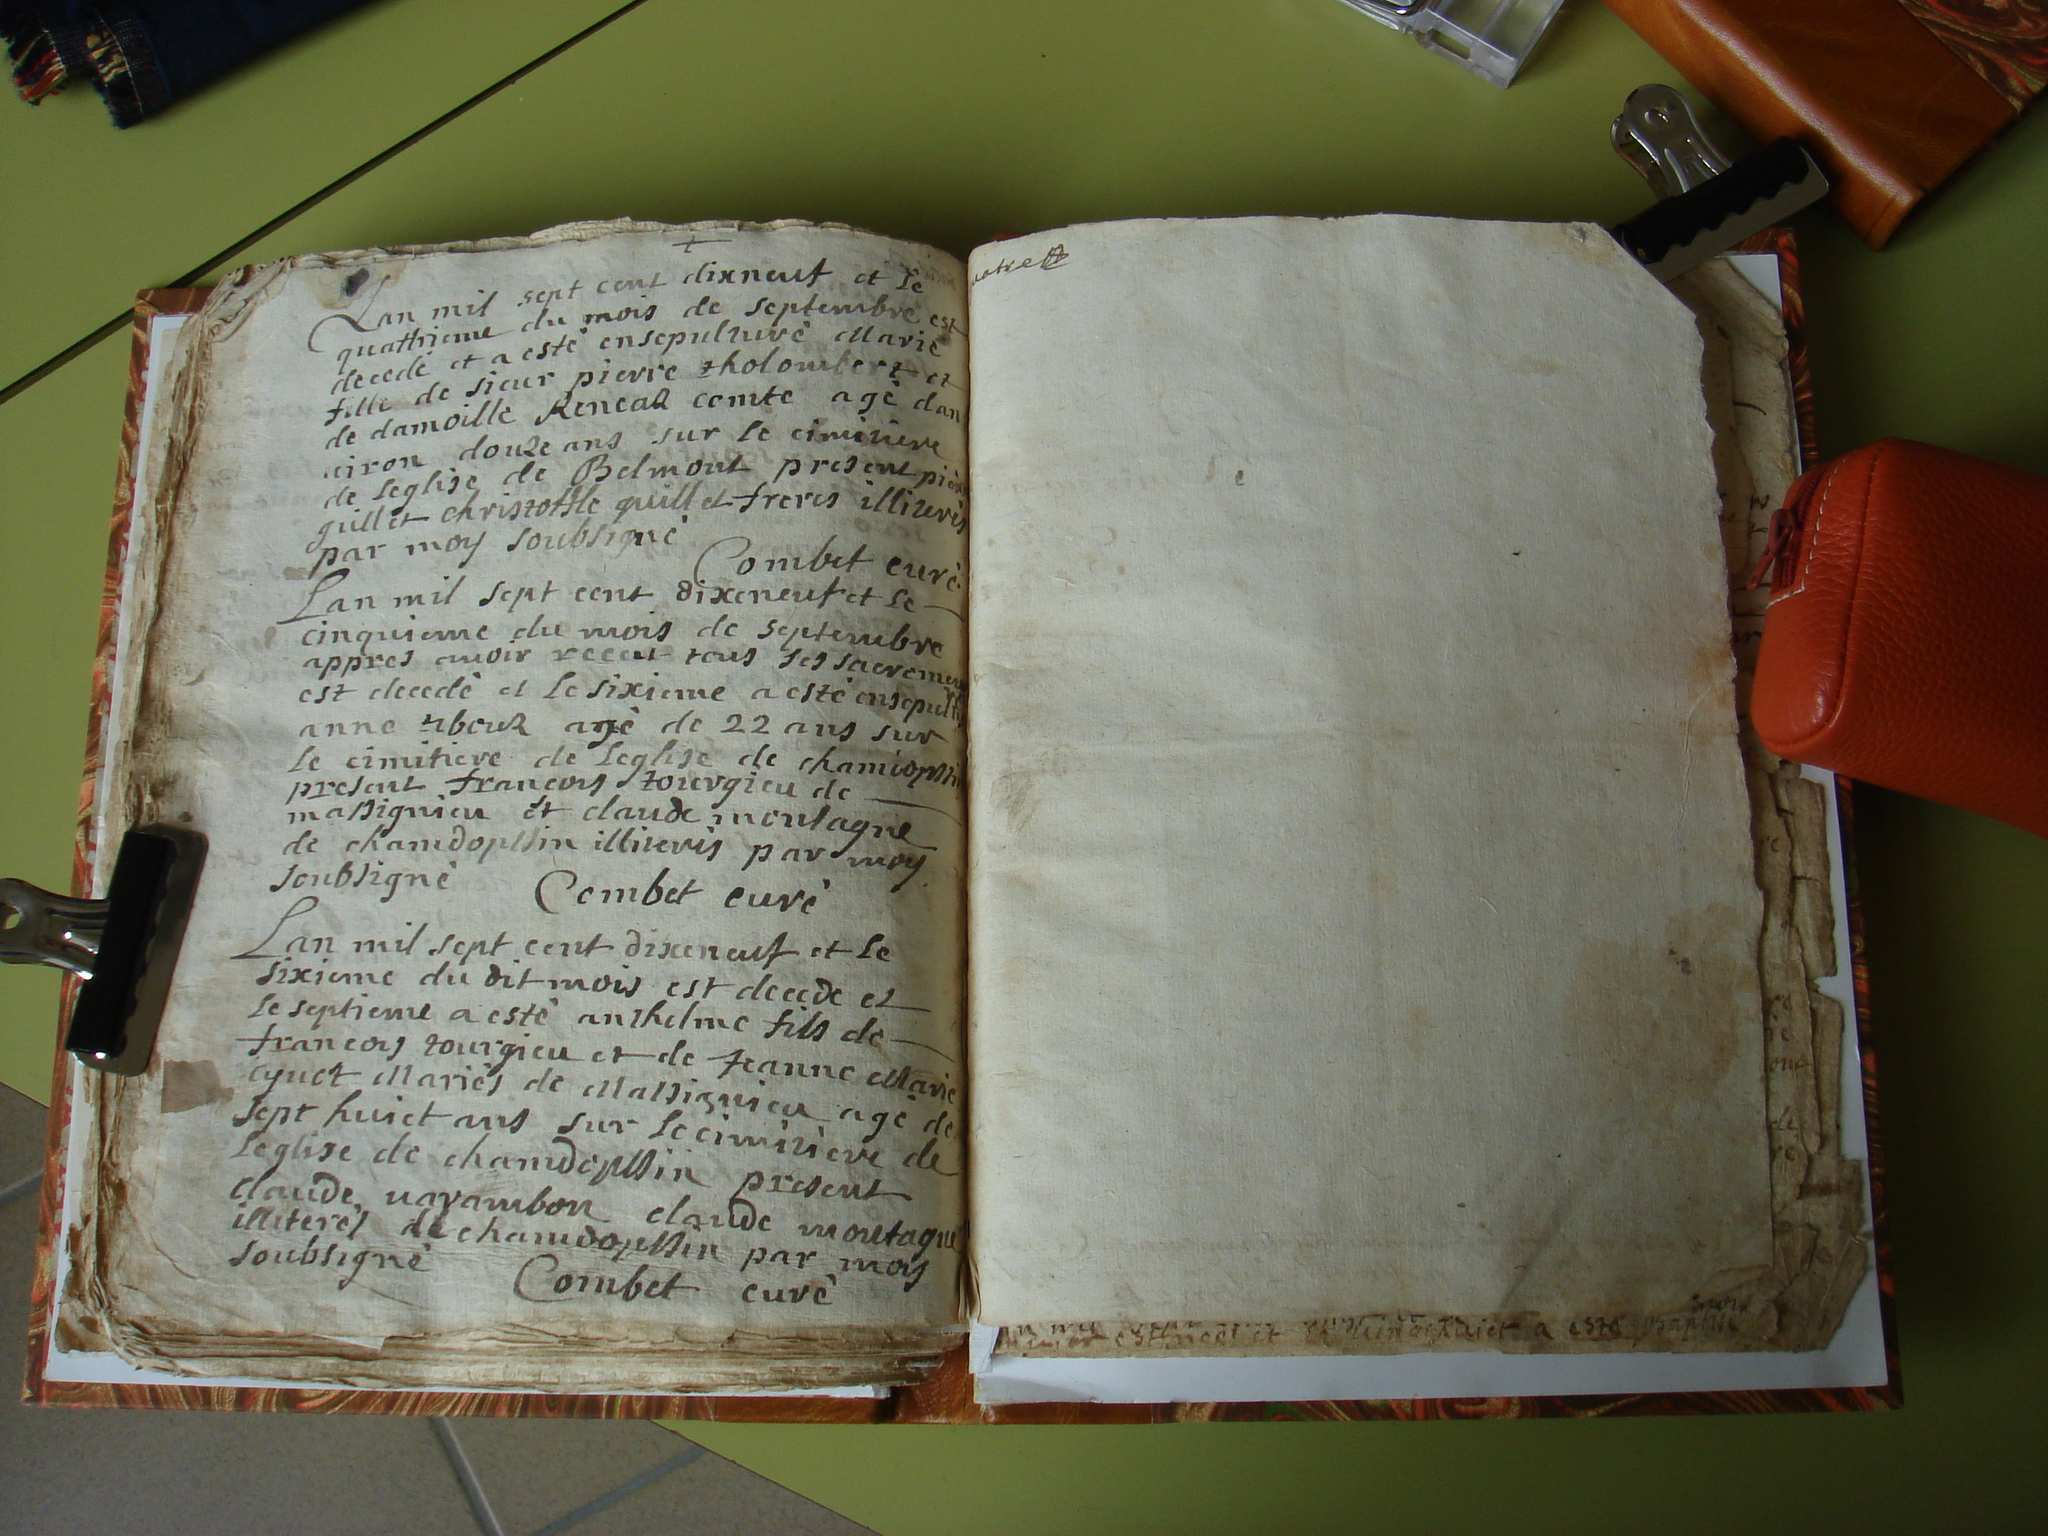 Lan mil sept cent dixneuf et le
quattrieme du mois de septembre est
decedé et a esté ensepulturé Marie
fille de sieur pierre tholombert et
de damoille Reneaz comte agé dan
viron douze ans sur le cimitiere
de leglise de Belmont present pierre
guillet christoffle guillet freres illiterés
par moy soubsigné
Combet curé
Lan mil sept cent dixeneuf et le
cinquieme du mois de septembre
appres avoir receu tous ses sacremens
est decedé et le sixieme a esté ensepult
anne agé de 22 ans sur
le cimitiere de leglise de chamdopssin
present francois tourgieu de
massignieu et claude montagne
de chamdopssin illiterés par moy
soubsigné
Combet curé
Lan mil sept cent dixeneuf et le
sixieme du dit mois est decede et
le septieme a esté anthelme fils de
francois tourgieu et de Jeanne Marie
cynet Mariés de Massignieu agé de
sept huict ans sur le cimitiere de
leglise de chamdopssin present
claude varambon claude montagne
illiterés de chamdopssin par moy
soubsigné
Combet curé
a esté baptisé